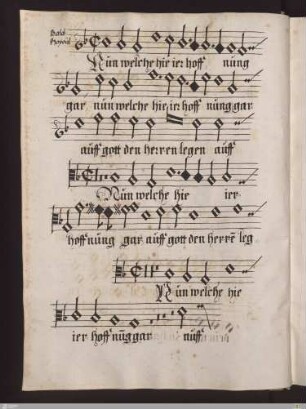 Nun welche hie ier hoff nung
gar nun welche hie ier hoff nung gar
auff gott den herren legen auff
Nun welche hie ier
hoff nung gar auff gott den herrē leg
Nun welche hie
ier hoff nūg gar auff